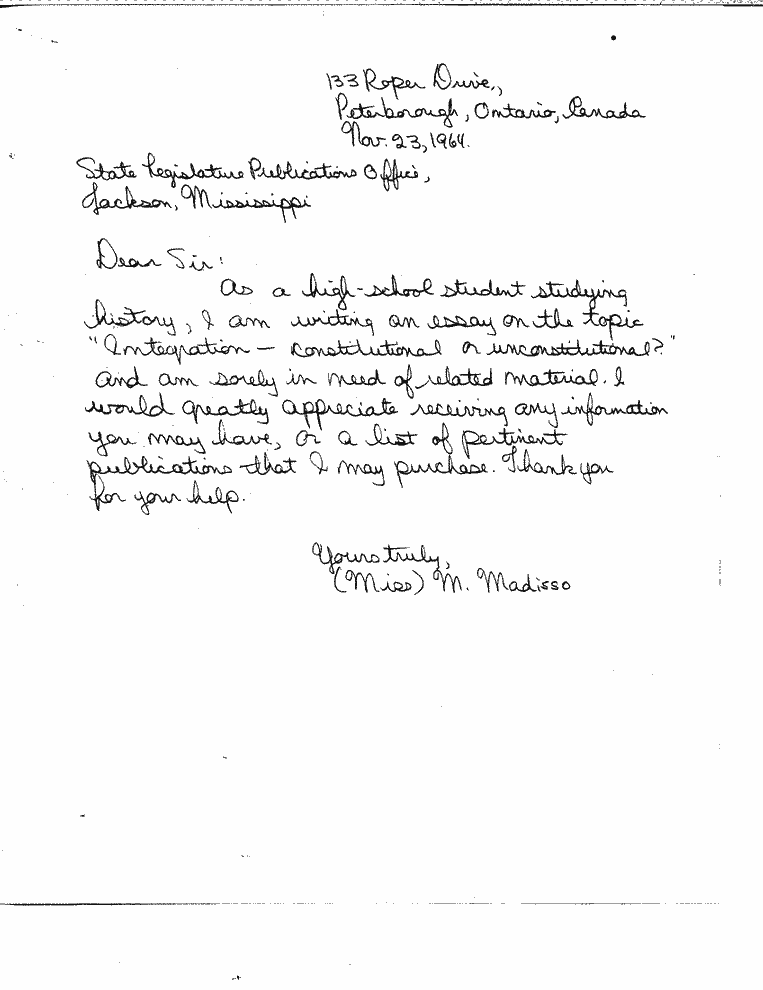 133 Roper Drive,,
Peterborough, Ontario, Canada
Nov. 23, 1964.
State Legislature Publications Office,
Jackson, Mississippi
Dear Sir:
As a high-school student studying
history, I am writing an essay on the topic
"Integration - constitutional or unconstitutional?"
and am sorely in need of related material. I
would greatly appreciate receiving any information
you may have, or a list of pertinent
publications that I may purchase. Thank you
for your help.
Yours truly,
(Miss) M. Madisso